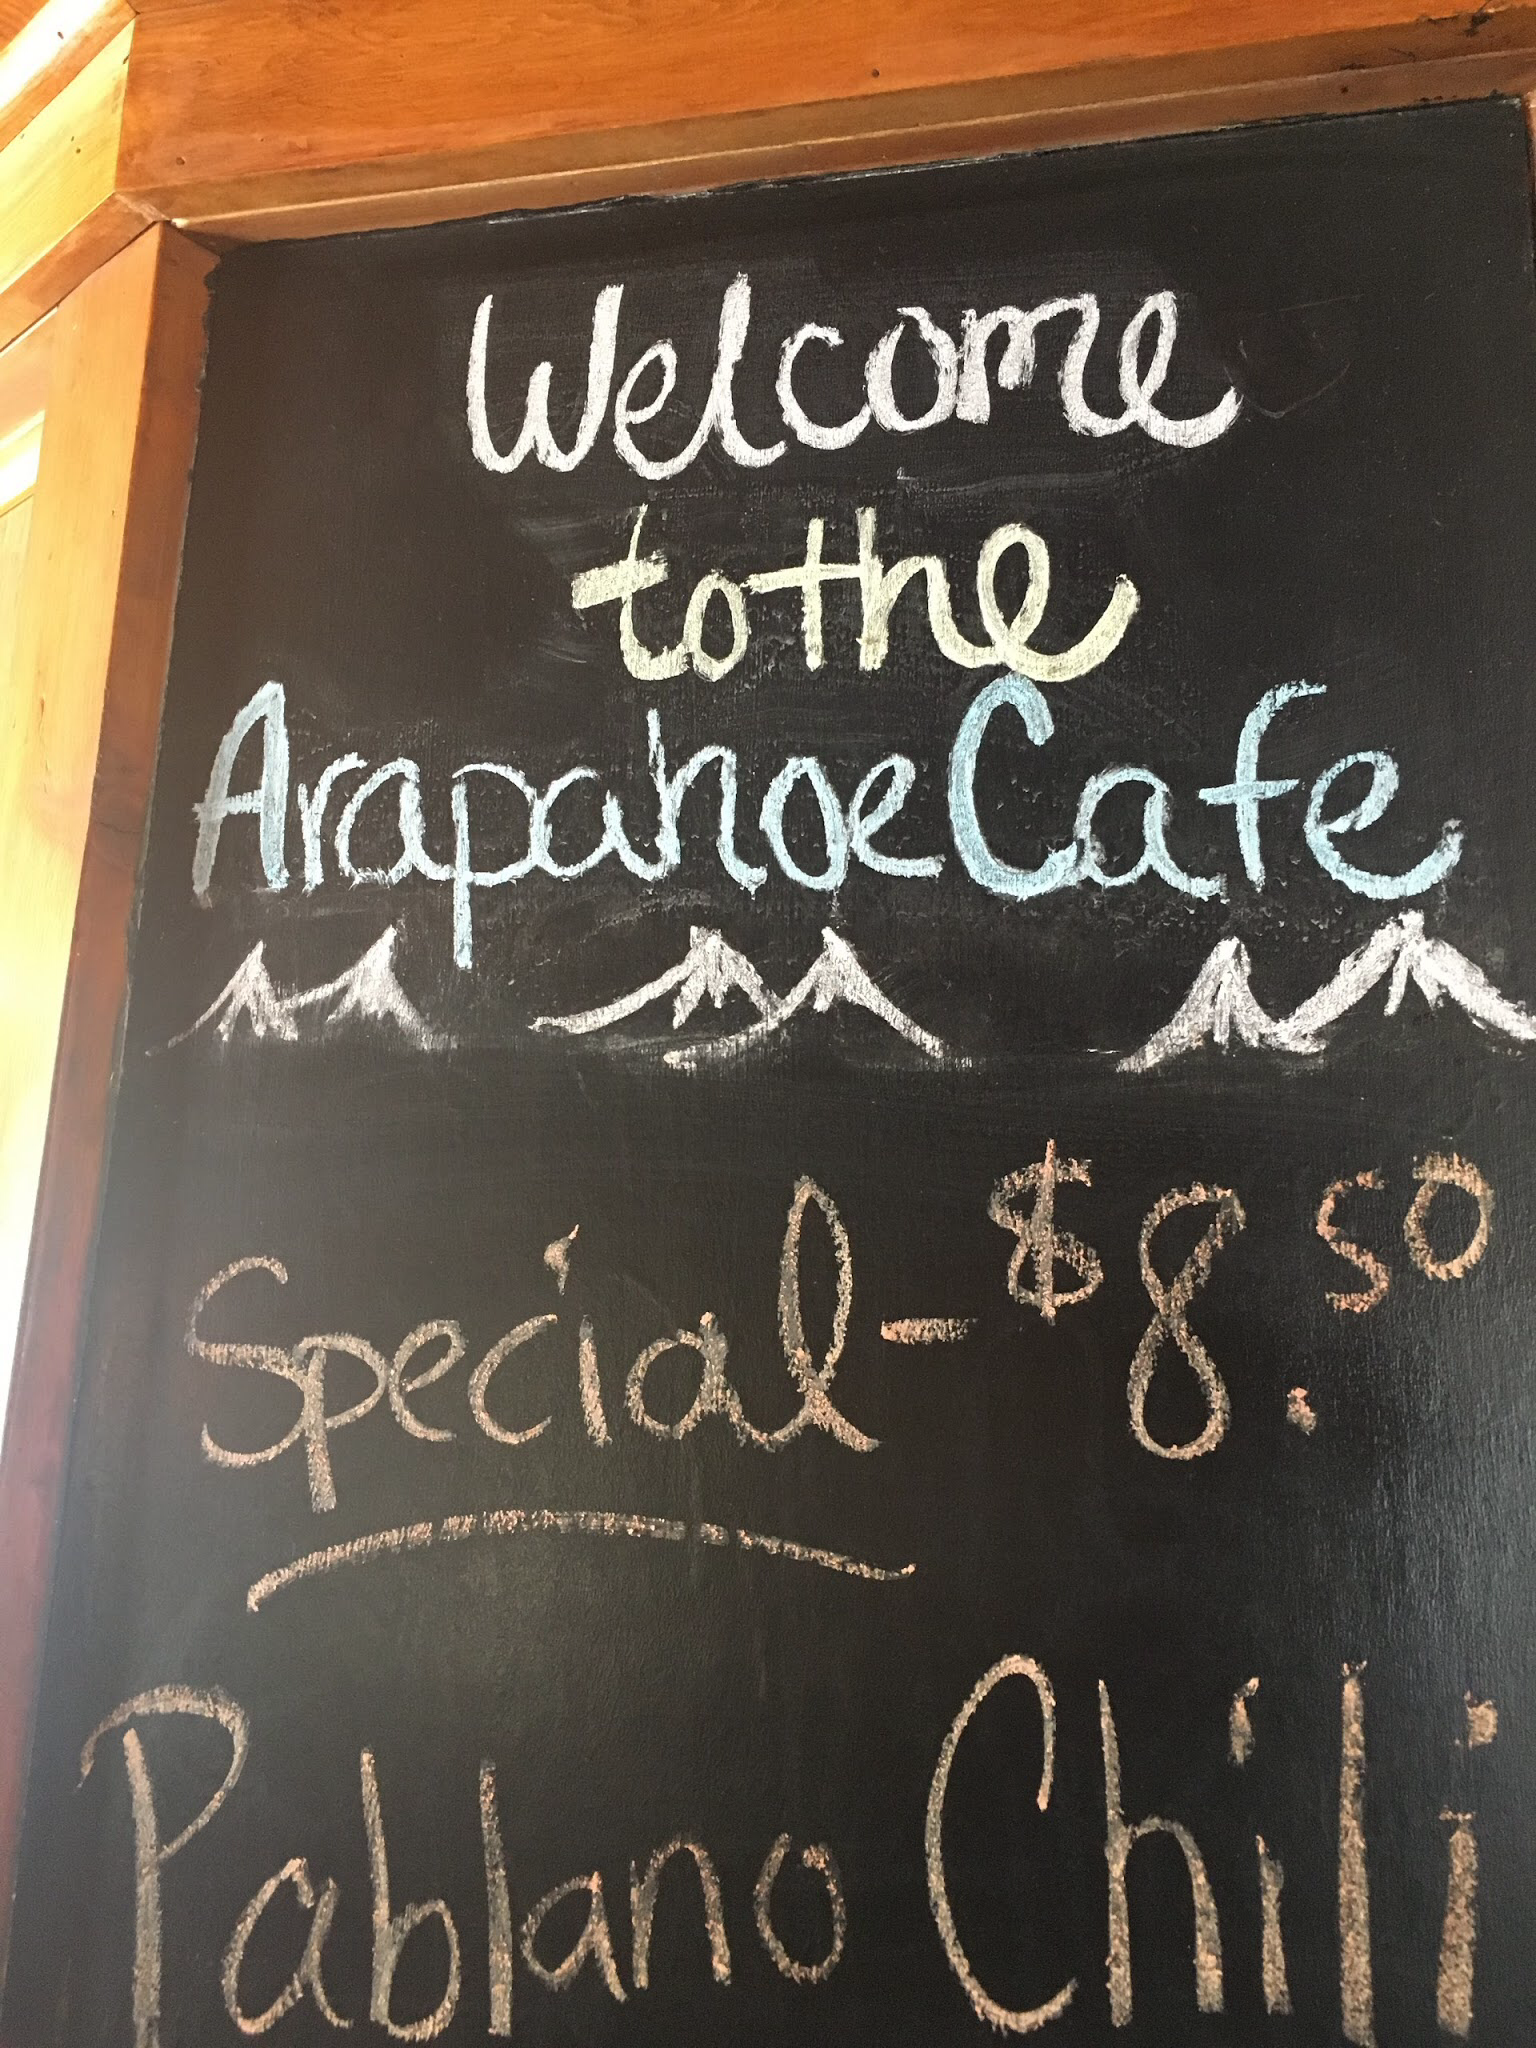 Welcome
to the
Arapahoe Cafe
Special - $8.50
Pablano Chili